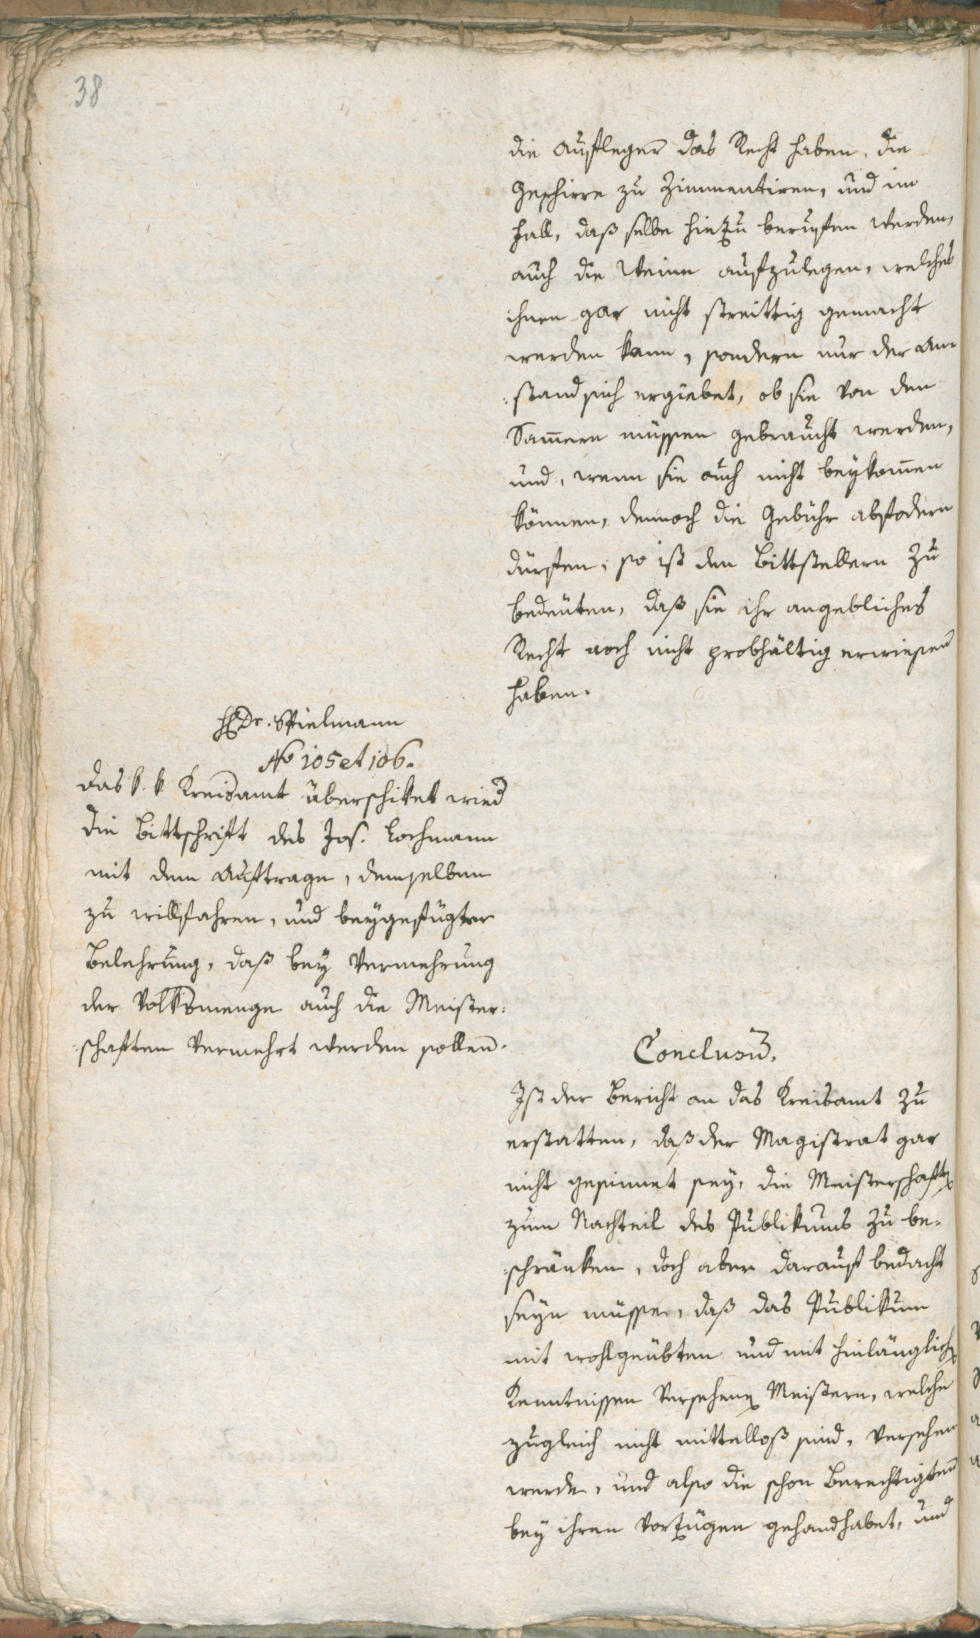 38
die Aufleger das Recht haben, die
Geschirre zu Zimmentiren, und im
Fall, daß selbe hiezu beruffen werden,
auch die Weine aufzulegen, welches
ihnen gar nicht streittig gemacht
werden kann, sondern nur der An¬
stand sich ergiebet, ob sie von den
Samern müssen gebraucht werden,
und, wenn sie auch nicht beykomen
können, dennoch die Gebühr abfodern
dürften; so ist den Bittstellern zu
bedeuten, daß sie ihr angebliches
Recht noch nicht probhältig erwiesen
haben.
H Dr. Spielmann
No 105 et 106.
Das k. k Kreisamt überschiket wied
die Bittschrift des Jos. Lochmann
mit dem Auftrage, demselben
zu willfahren, und beygefügter
Belehrung, daß bey Vermehrung
der Volksmenge auch die Meister:
:schaften vermehrt werden sollen.
Conclusum.
Ist der Bericht an das Kreisamt zu
erstatten, daß der Magistrat gar
nicht gesinnet sey, die Meisterschaften
zum Nachteil des Publikums zu be¬
:schränken, doch aber darauf bedacht
seyn müsse, daß das Publikum
mit wohlgeübten und mit hinlänglichen
Kenntnissen versehenen Meistern, welche
zugleich nicht mittelloß sind, versehen
werde, und also die schon Berechtigten
bey ihren Vorzügen gehandhabet, und